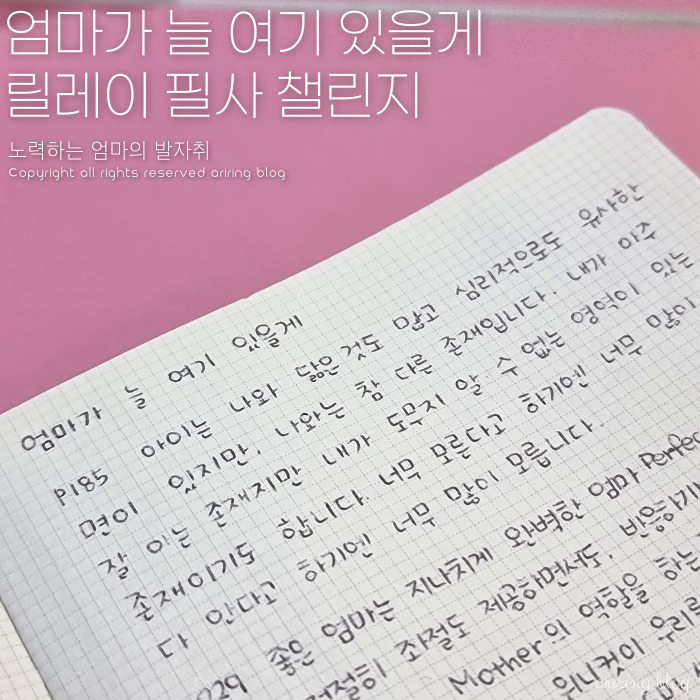 엄마가 늘 여기 있을게
릴레이 필사 챌린지
노력하는 엄마의 발자취
Copyright all rights reserved ariring blog
엄마가 늘 여기 있을게
P185 아이는 나와 닮은것도 많고 심리적으로도 유사한
면이 있지만, 나와는 참 다른 존재입니다. 내가 아주
잘 아는 존재지만 내가 도무지 알 수 없는 영역이 있는
존재이기도 합니다. 너무 모른다고 하기엔 너무 많이
다 안다고 하기엔 너무 많이 모릅니다.
229 좋은 엄마는 지나치게 완벽한 엄마 Perfec
적절히 좌절도 제공하면서도, 반응하기
Mother의 역할을 하는
위니컷이 우리
ariring blog